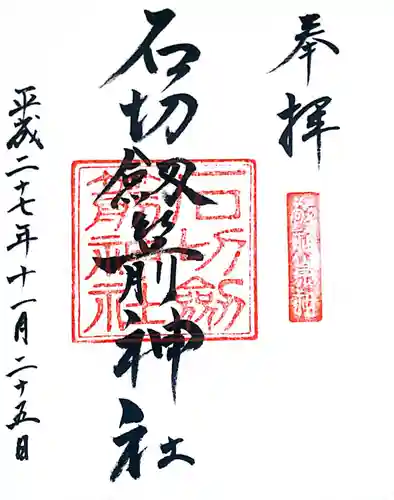 奉拝
石切劔箭神社
平成二十七年十一月二十五日
石切劍
箭神社